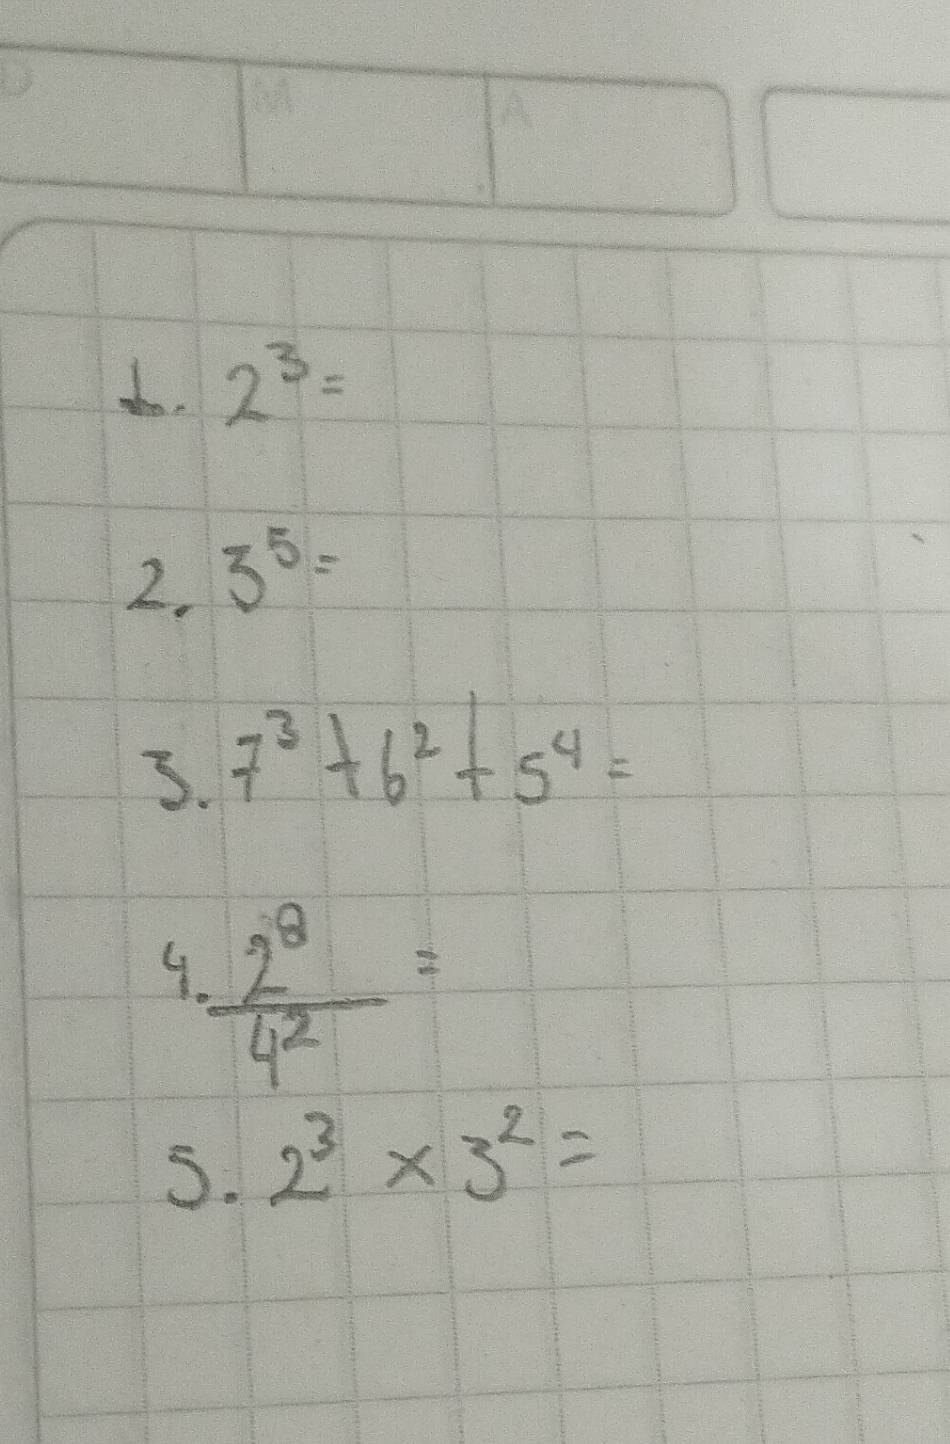 D M A
1. 2³=
2. 3⁵=
3. 7³+6²+5⁴=
4. 2⁸/4² =
5. 2³ × 3² =